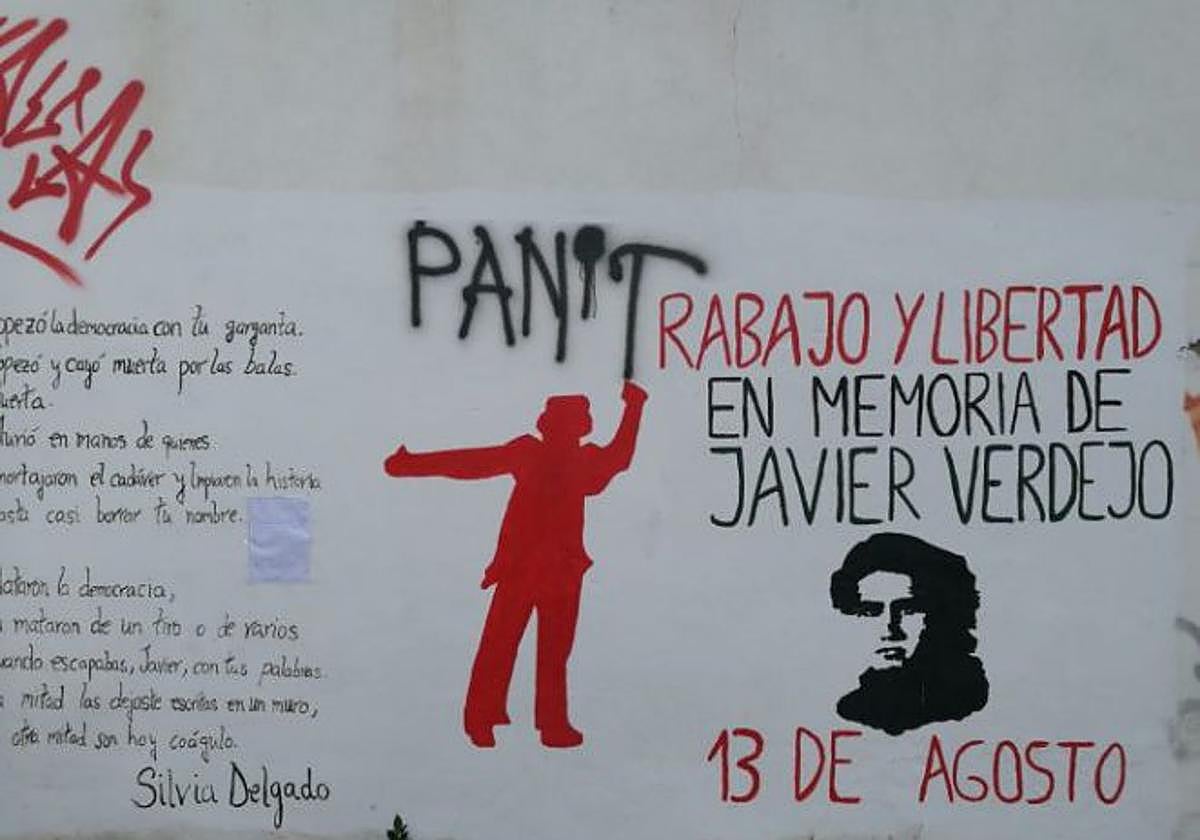 opezó la democracia con tu garganta.
opezó y cayó muerta por las balas.
uerta.
Murió en manos de quienes
mortajaron el cadáver y limpiaron la historia
asta casi borrar tu nombre.
Mataron la democracia,
a mataron de un tiro o de varios
uando escapabas, Javier, con tus palabras.
a mitad las dejaste escritas en un muro,
otra mitad son hoy coágulo.
Silvia Delgado
PAN Y T
RABAJO Y LIBERTAD
EN MEMORIA DE
JAVIER VERDEJO
13 DE AGOSTO